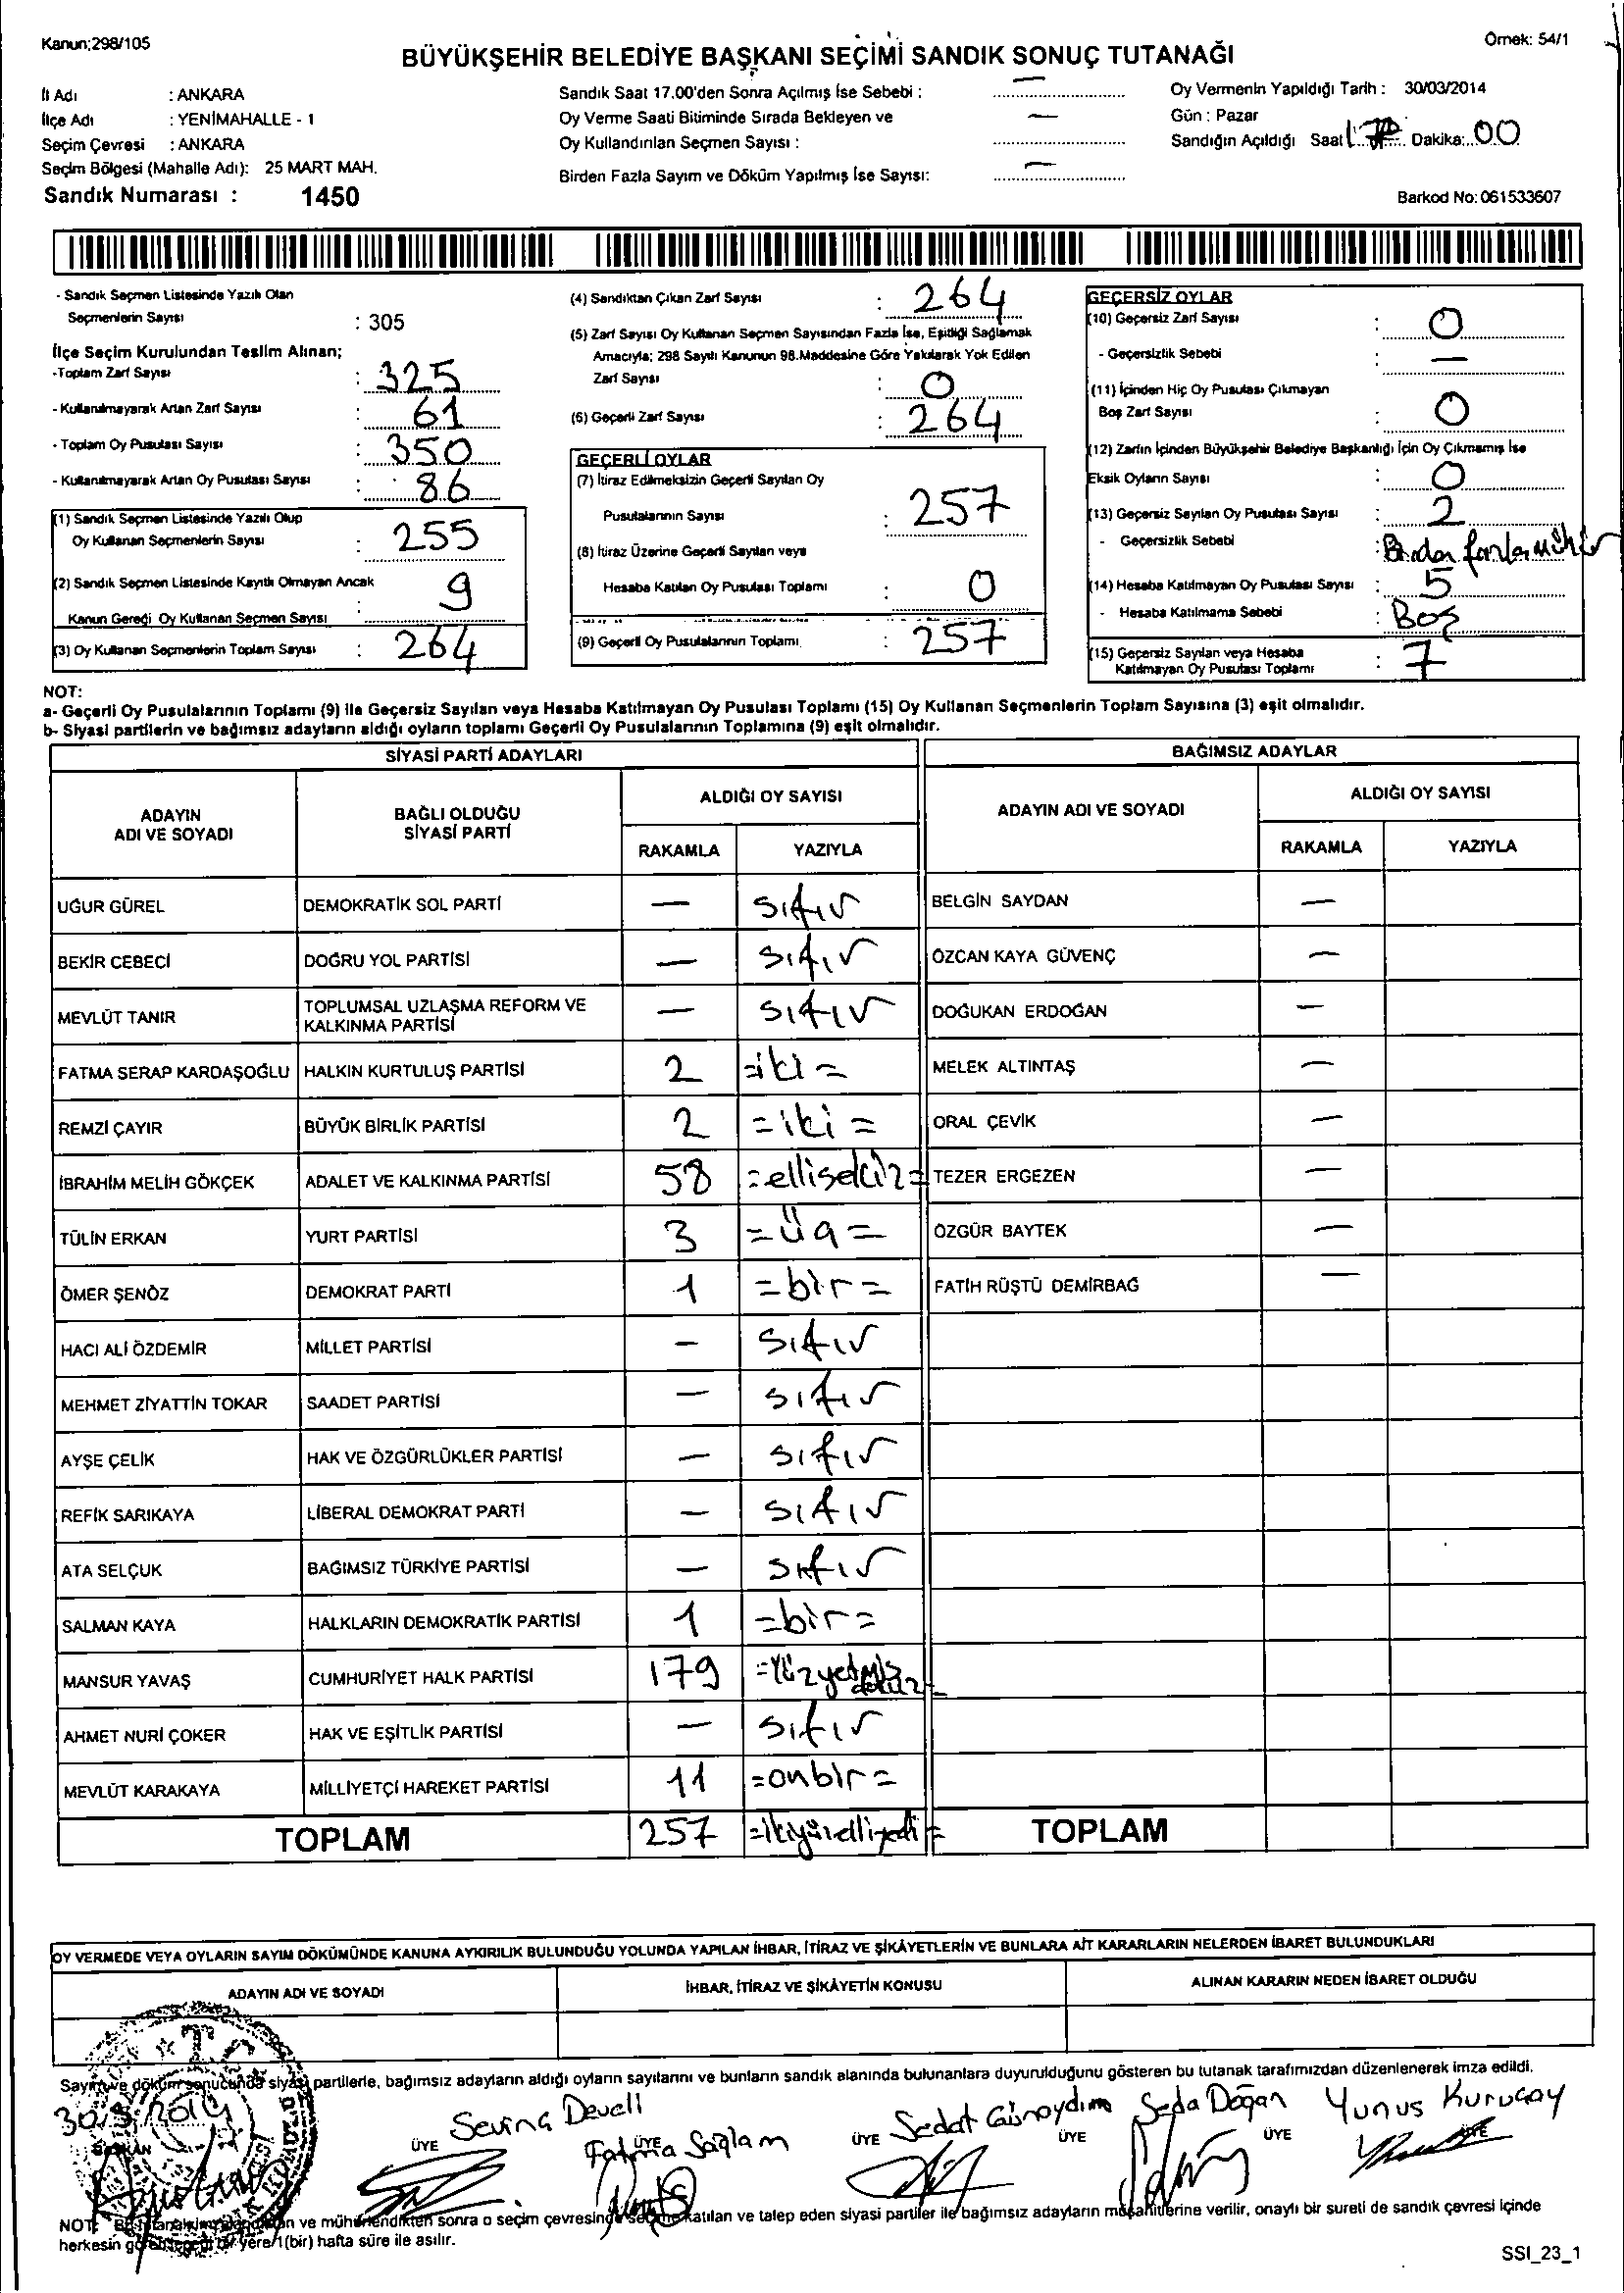 Kanun;298/105
Örnek: 54/1
BÜYÜKŞEHİR BELEDİYE BAŞKANI SEÇİMİ SANDIK SONUÇ TUTANAĞI
İl Adı : ANKARA
İlçe Adı : YENİMAHALLE - 1
Seçim Çevresi : ANKARA
Seçim Bölgesi (Mahalle Adı): 25 MART MAH.
Sandık Numarası : 1450
Sandık Saat 17.00'den Sonra Açılmış İse Sebebi : —
Oy Verme Saati Bitiminde Sırada Bekleyen ve —
Oy Kullandırılan Seçmen Sayısı :
Birden Fazla Sayım ve Döküm Yapılmış İse Sayısı: —
Oy Vermenin Yapıldığı Tarih : 30/03/2014
Gün : Pazar
Sandığın Açıldığı Saat 17 Dakika: 00
Barkod No: 061533607
- Sandık Seçmen Listesinde Yazılı Olan
Seçmenlerin Sayısı : 305
İlçe Seçim Kurulundan Teslim Alınan;
-Toplam Zarf Sayısı : 325
- Kullanılmayarak Artan Zarf Sayısı : 61
- Toplam Oy Pusulası Sayısı : 350
- Kullanılmayarak Artan Oy Pusulası Sayısı : 86
(1) Sandık Seçmen Listesinde Yazılı Olup
Oy Kullanan Seçmenlerin Sayısı : 255
(2) Sandık Seçmen Listesinde Kayıtlı Olmayan Ancak
Kanun Gereği Oy Kullanan Seçmen Sayısı : 9
(3) Oy Kullanan Seçmenlerin Toplam Sayısı : 264
(4) Sandıktan Çıkan Zarf Sayısı : 264
(5) Zarf Sayısı Oy Kullanan Seçmen Sayısından Fazla İse, Eşitliği Sağlamak
Amacıyla; 298 Sayılı Kanunun 98.Maddesine Göre Yakılarak Yok Edilen
Zarf Sayısı : 0
(6) Geçerli Zarf Sayısı : 264
GEÇERLİ OYLAR
(7) İtiraz Edilmeksizin Geçerli Sayılan Oy
Pusulalarının Sayısı : 257
(8) İtiraz Üzerine Geçerli Sayılan veya
Hesaba Katılan Oy Pusulası Toplamı : 0
(9) Geçerli Oy Pusulalarının Toplamı : 257
GEÇERSİZ OYLAR
(10) Geçersiz Zarf Sayısı : 0
- Geçersizlik Sebebi : —
(11) İçinden Hiç Oy Pusulası Çıkmayan
Boş Zarf Sayısı : 0
(12) Zarfın İçinden Büyükşehir Belediye Başkanlığı İçin Oy Çıkmamış İse
Eksik Oyların Sayısı : 0
(13) Geçersiz Sayılan Oy Pusulası Sayısı : 2
- Geçersizlik Sebebi : Birden fazla mühür
(14) Hesaba Katılmayan Oy Pusulası Sayısı : 5
- Hesaba Katılmama Sebebi : Boş
(15) Geçersiz Sayılan veya Hesaba
Katılmayan Oy Pusulası Toplamı : 7
NOT:
a- Geçerli Oy Pusulalarının Toplamı (9) ile Geçersiz Sayılan veya Hesaba Katılmayan Oy Pusulası Toplamı (15) Oy Kullanan Seçmenlerin Toplam Sayısına (3) eşit olmalıdır.
b- Siyasi partilerin ve bağımsız adayların aldığı oyların toplamı Geçerli Oy Pusulalarının Toplamına (9) eşit olmalıdır.
SİYASİ PARTİ ADAYLARI BAĞIMSIZ ADAYLAR
ADAYIN
ADI VE SOYADI
BAĞLI OLDUĞU
SİYASİ PARTİ
ALDIĞI OY SAYISI
RAKAMLA YAZIYLA
ADAYIN ADI VE SOYADI
ALDIĞI OY SAYISI
RAKAMLA YAZIYLA
UĞUR GÜREL DEMOKRATİK SOL PARTİ — sıfır BELGİN SAYDAN —
BEKİR CEBECİ DOĞRU YOL PARTİSİ — sıfır ÖZCAN KAYA GÜVENÇ —
MEVLÜT TANIR TOPLUMSAL UZLAŞMA REFORM VE KALKINMA PARTİSİ — sıfır DOĞUKAN ERDOĞAN —
FATMA SERAP KARDAŞOĞLU HALKIN KURTULUŞ PARTİSİ 2 =iki= MELEK ALTINTAŞ —
REMZİ ÇAYIR BÜYÜK BİRLİK PARTİSİ 2 =iki= ORAL ÇEVİK —
İBRAHİM MELİH GÖKÇEK ADALET VE KALKINMA PARTİSİ 58 =ellisekiz= TEZER ERGEZEN —
TÜLİN ERKAN YURT PARTİSİ 3 =üç= ÖZGÜR BAYTEK —
ÖMER ŞENÖZ DEMOKRAT PARTİ 1 =bir= FATİH RÜŞTÜ DEMİRBAĞ —
HACI ALİ ÖZDEMİR MİLLET PARTİSİ — sıfır
MEHMET ZİYATTİN TOKAR SAADET PARTİSİ — sıfır
AYŞE ÇELİK HAK VE ÖZGÜRLÜKLER PARTİSİ — sıfır
REFİK SARIKAYA LİBERAL DEMOKRAT PARTİ — sıfır
ATA SELÇUK BAĞIMSIZ TÜRKİYE PARTİSİ — sıfır
SALMAN KAYA HALKLARIN DEMOKRATİK PARTİSİ 1 =bir=
MANSUR YAVAŞ CUMHURİYET HALK PARTİSİ 179 =Yüzyetmiş dokuz=
AHMET NURİ ÇOKER HAK VE EŞİTLİK PARTİSİ — sıfır
MEVLÜT KARAKAYA MİLLİYETÇİ HAREKET PARTİSİ 11 =onbir=
TOPLAM 257 =ikiyüzelliyedi= TOPLAM
OY VERMEDE VEYA OYLARIN SAYIM DÖKÜMÜNDE KANUNA AYKIRILIK BULUNDUĞU YOLUNDA YAPILAN İHBAR, İTİRAZ VE ŞİKÂYETLERİN VE BUNLARA AİT KARARLARIN NELERDEN İBARET BULUNDUKLARI
ADAYIN ADI VE SOYADI İHBAR, İTİRAZ VE ŞİKÂYETİN KONUSU ALINAN KARARIN NEDEN İBARET OLDUĞU
Sayım ve döküm sonucunda siyasi partilerle, bağımsız adayların aldığı oyların sayılarını ve bunların sandık alanında bulunanlara duyurulduğunu gösteren bu tutanak tarafımızdan düzenlenerek imza edildi.
30.3.2014 Sevinç Develi Fatma Sağlam Sedat Günaydın Seda Doğan Yunus Kuruçay
BAŞKAN ÜYE ÜYE ÜYE ÜYE ÜYE ÜYE
NOT: sonra o seçim çevresinde seçime katılan ve talep eden siyasi partiler ile bağımsız adayların müşahitlerine verilir, onaylı bir sureti de sandık çevresi içinde
herkesin bir yere 1(bir) hafta süre ile asılır.
SSI_23_1